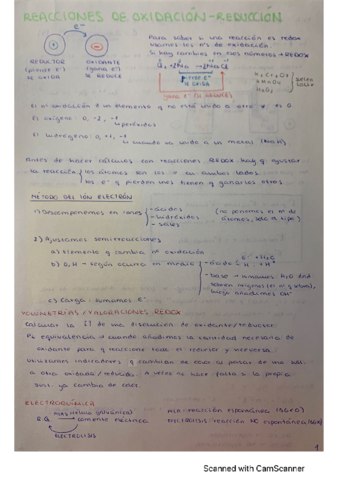 REACCIONES DE OXIDACIÓN-REDUCCIÓN
e⁻
REDUCTOR OXIDANTE
(pierde e⁻) (gana e⁻)
SE OXIDA SE REDUCE
Para saber si una reacción es redox
usamos los nºs de oxidación.
Si hay cambios en esos números → REDOX
SE OXIDA
gana e⁻ SE REDUCE
El nº oxidación de un elemento q no está unido a otro es 0.
El oxígeno: 0, -2, -1
↳ peróxidos
El hidrógeno: 0, +1, -1
↳ cuando va unido a un metal
Antes de hacer cálculos con reacciones REDOX hay q ajustar
la reacción los átomos son los = en ambos lados
los e⁻ q pierden unos tienen q ganarlos otros
MÉTODO DEL IÓN ELECTRÓN
1) Descomponemos en iones - ácidos
- hidróxidos
- sales
(no ponemos el nº de
2) Ajustamos semirreacciones
a) Elemento q cambia nº oxidación
b) O, H → según ocurra en medio - ácido H₂O
H⁺
- base → añadimos H₂O
luego añadimos OH⁻
c) Carga: sumamos e⁻
VOLUMETRÍAS / VALORACIONES REDOX
Calcular la [ ] de una disolución de oxidante/reductor.
Pto equivalencia: cuando añadimos la cantidad necesaria de
oxidante para q reaccione todo el reductor y viceversa.
Utilizamos indicadores q cambian de color al pasar de una
a otra oxidada/reducida. A veces no hace falta si la propia
sust. ya cambia de color.
ELECTROQUÍMICA
pila (célula galvánica)
corriente eléctrica
ELECTRÓLISIS
PILA: reacción espontánea (ΔG<0)
ELECTRÓLISIS: reacción NO espontánea (ΔG>0)
1
Scanned with CamScanner